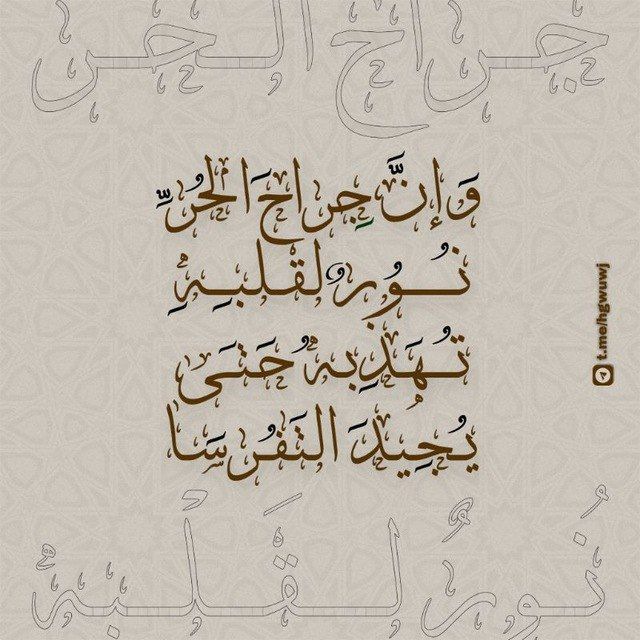 جراح الحر
وَإنَّ جِراحَ الحُرِّ
نُورٌ لقلبِهِ
تُهَذِبهُ حَتَى
يُجِيدَ التَفرُسَا
t.me/hgwuwj
نُورٌ لقَلْبهِ